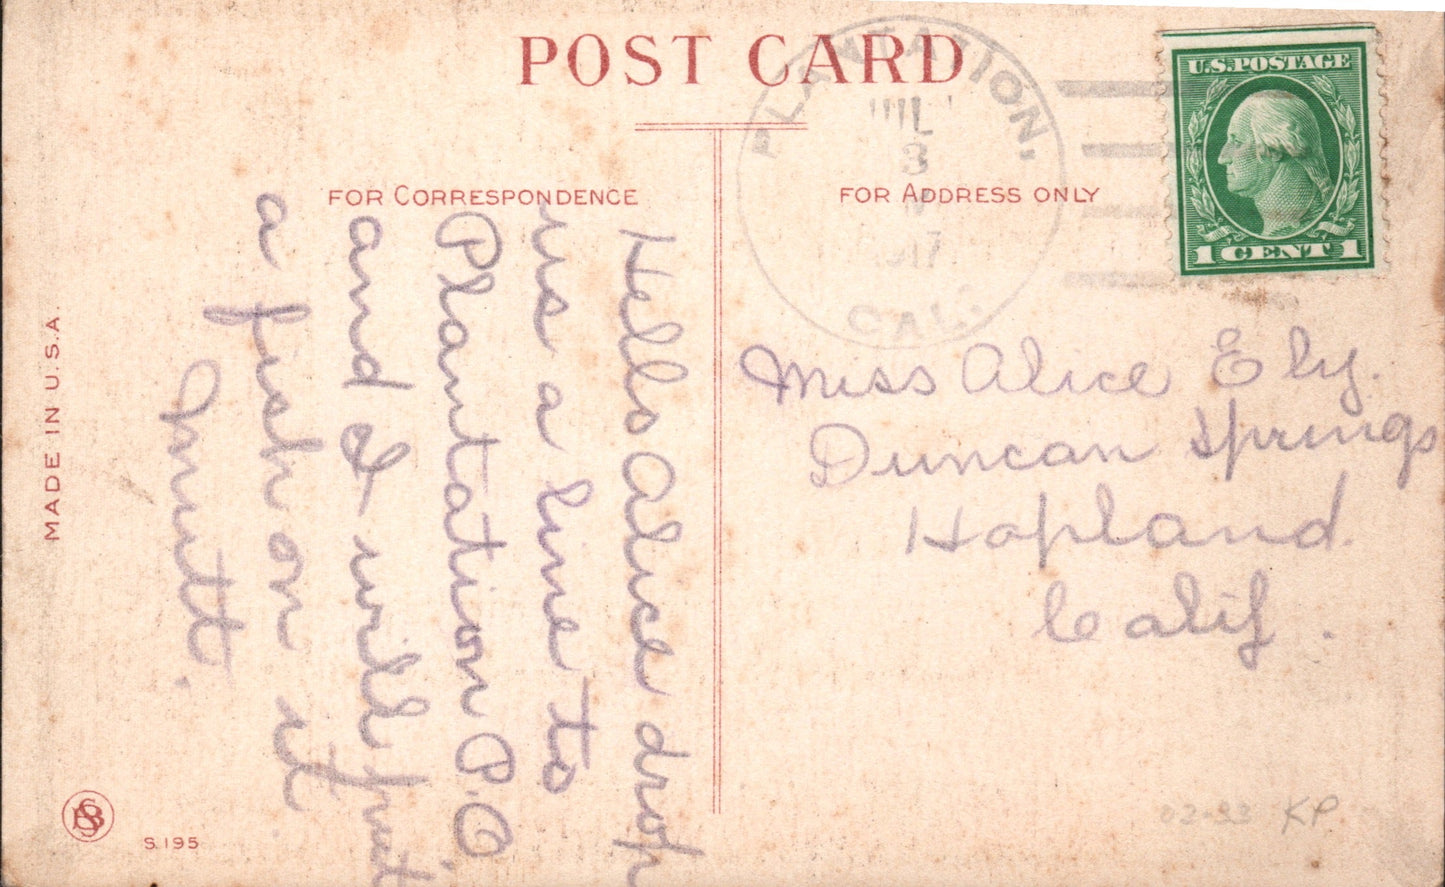 POST CARD
PLANTATION,
3
CAL.
U.S.POSTAGE
1 CENT 1
FOR CORRESPONDENCE
FOR ADDRESS ONLY
Hello Alice drop
us a line to
Plantation P.O.
and I will put
a fish on it
Miss Alice Ely.
Duncan Springs
Hopland.
Calif.
MADE IN U.S.A.
S. 195
KP